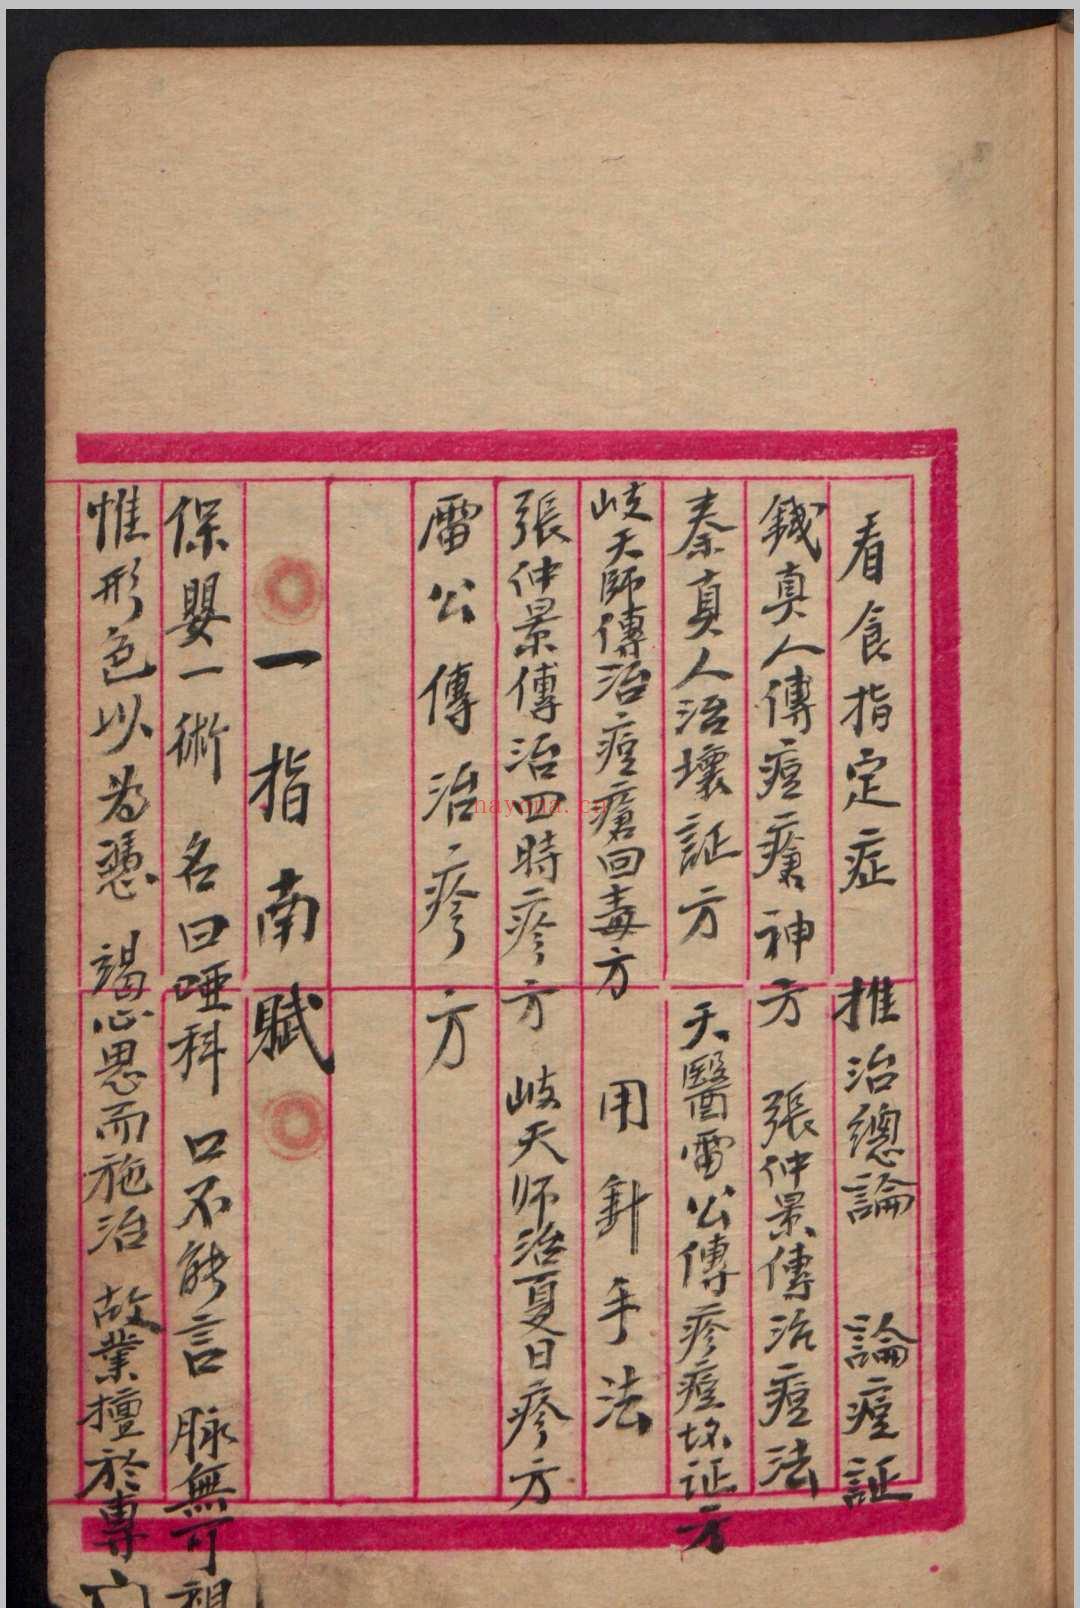 看食指定症　推治總論　論痘証
鉞真人傳痘瘡神方　張仲景傳治痘法
秦真人治壞証方　天醫雷公傳疹痘壊证方
岐天師傳治痘瘡回毒方　用針手法
張仲景傳治四時疹方　岐天师治夏日疹方
雷公傳治疹方
一指南賦
保嬰一術　名曰啞科　口不能言　脉無可視
惟形色以為憑　竭心思而施治　故業擅於專
hayona.cn